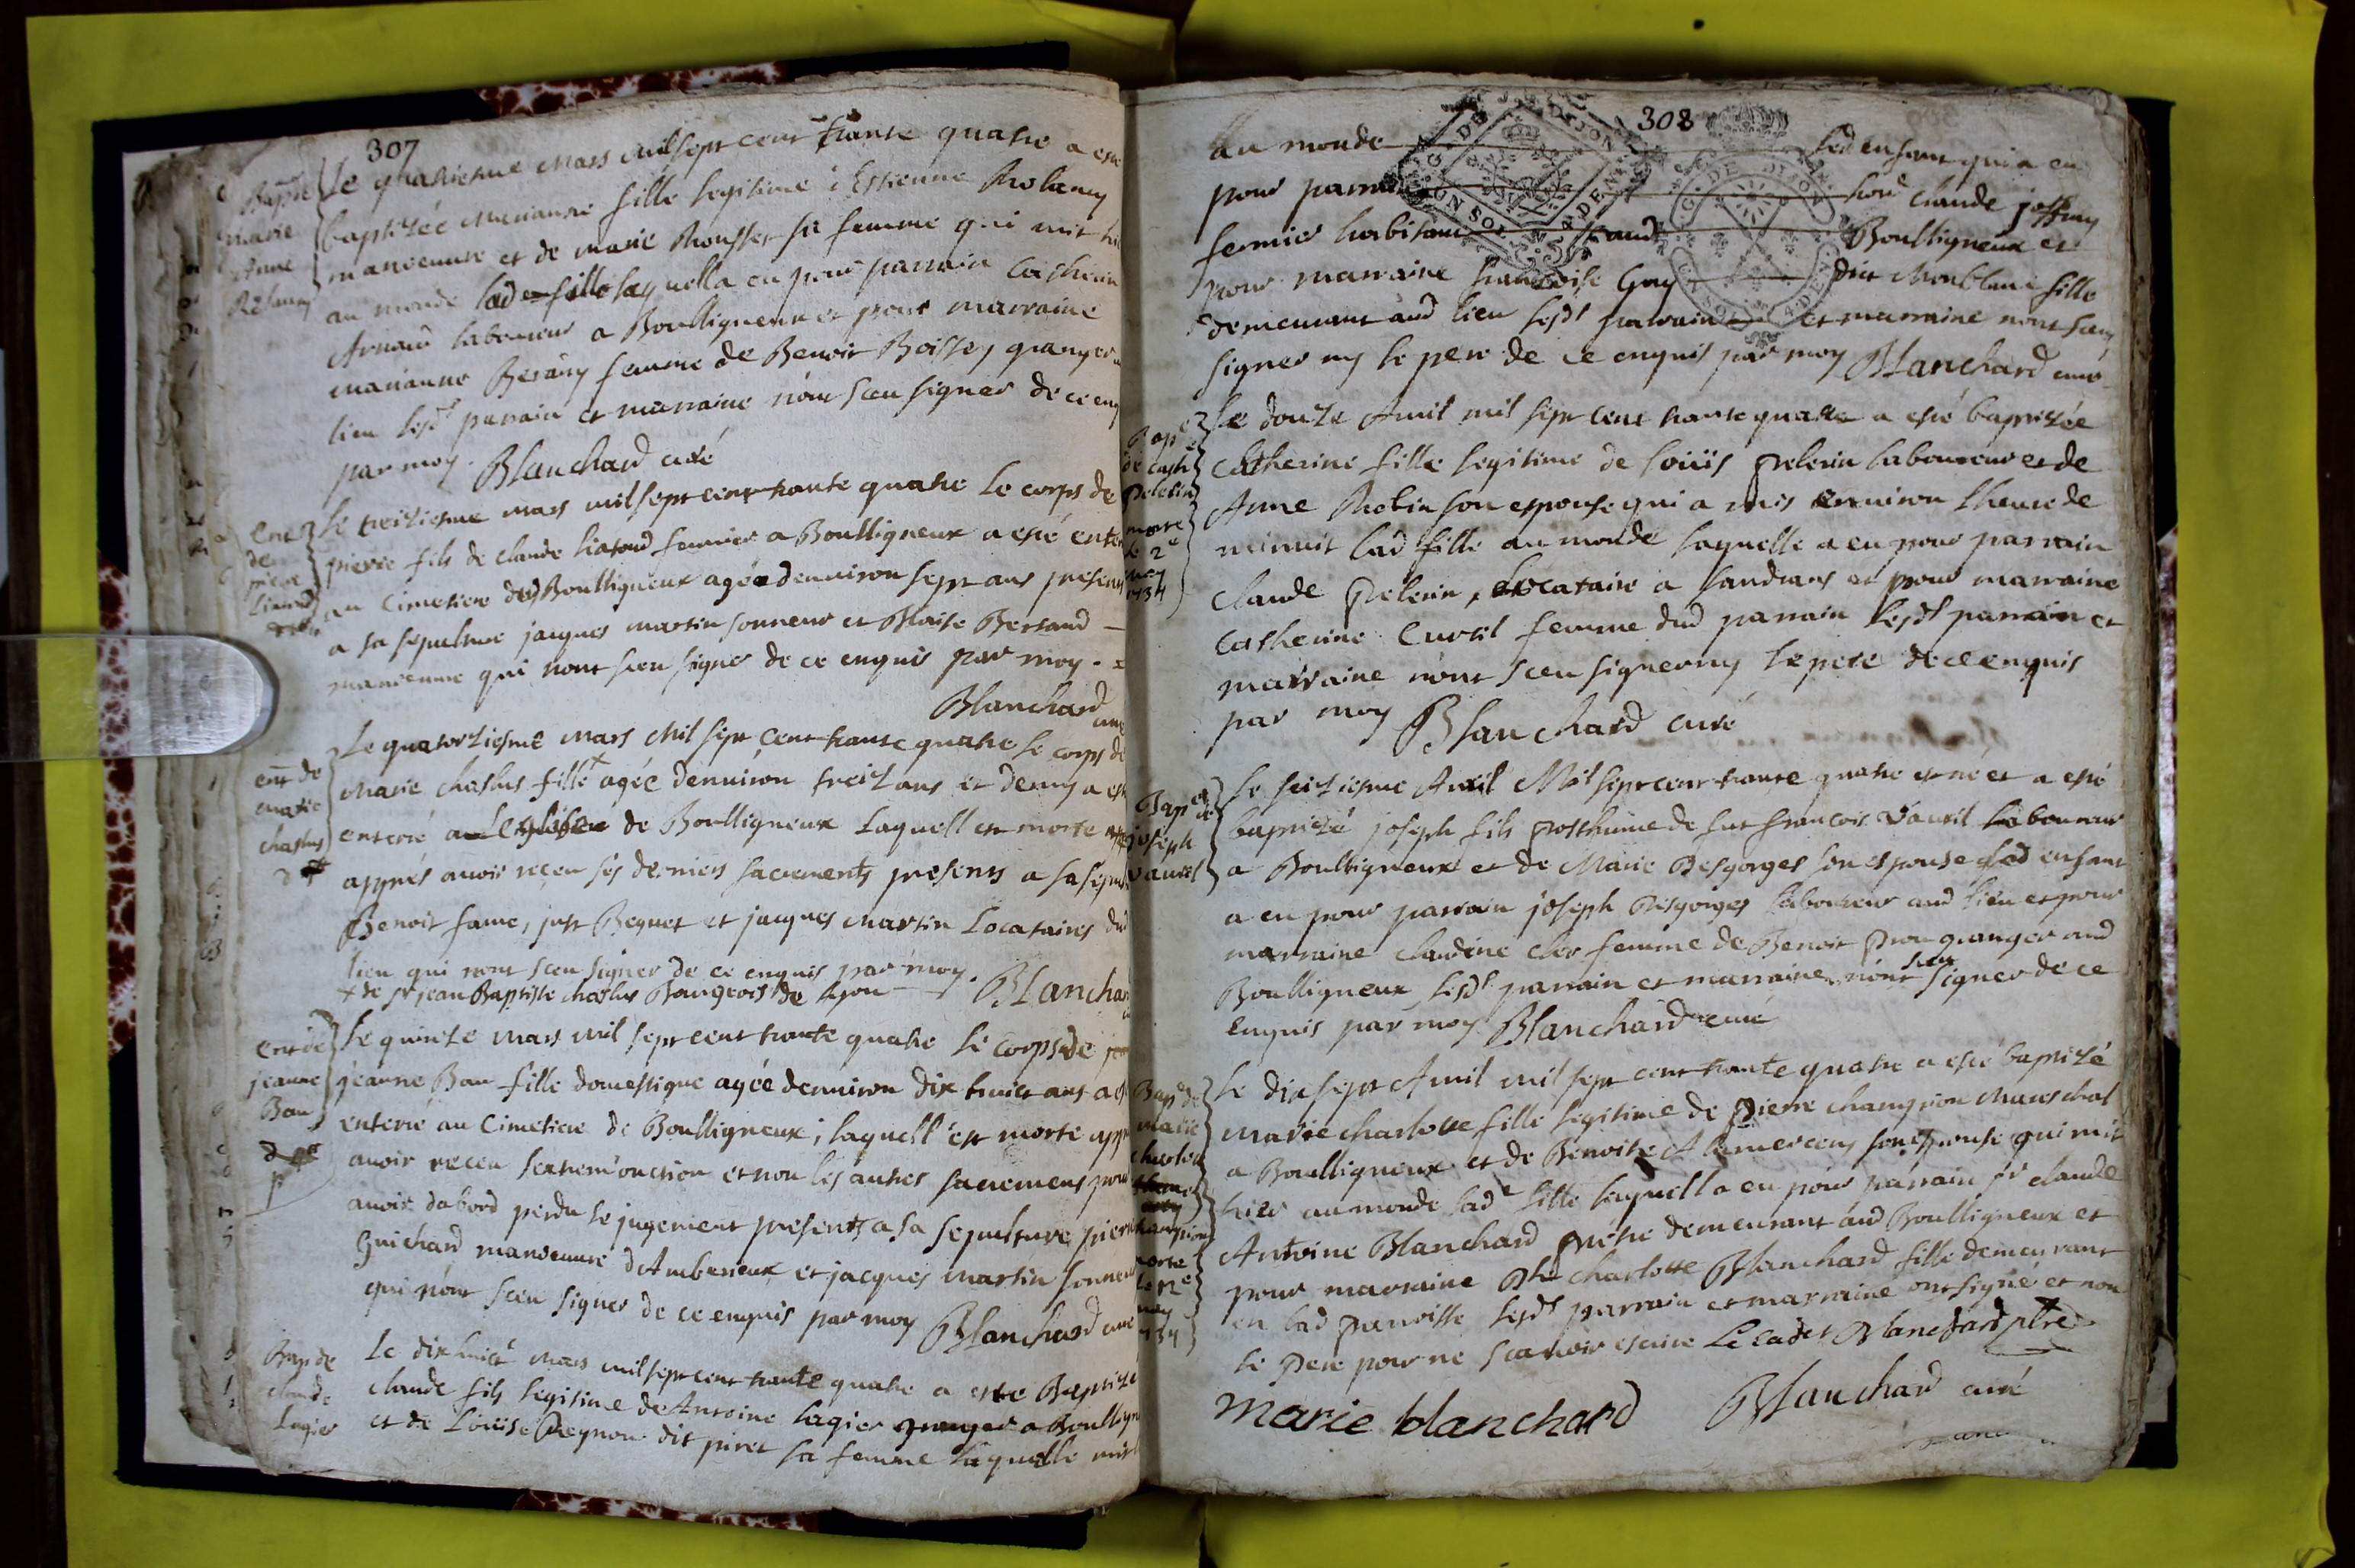 307
Bap de
marie
Anne
Rolamy
Le quatriesme Mars mil sept cent trante quatre a esté
baptizée Marianne fille legitime d'Estienne Rolamy
manoeuvre et de marie Rousset sa femme qui mit
au monde lade fille laquella eu pour parrain Catherin
Arnaud laboureur a Boulligneux et pour marraine
marianne Berany femme de Benoit Boissey granger
lieu lesdt parrain et marraine n'ont sceu signer de ce enq
par moy. Blanchard curé
ent
de
pierre
Liatoud
le treiziesme mars mil sept cent trante quatre Le corps de
pierre fils de claude liatoud fermier a Boulligneux a esté enter
au Cimetiere dud Boulligneux agée denuiron sept ans presens
a sa sepulture jacques martin sonneur et Blaise Bertaud
manoeuvre qui n'ont sceu signer de ce enquis par moy.
Blanchard curé
ent de
marie
chaslus
Le quatorziesme mars Mil sept cent trante quatre le corps de
Marie chaslus fille + agée denuiron treiz ans et demy a esté
enterré a l'Eglise de Boulligneux Laquell est morte
apprés auoir reçeu ses derniers sacrements presents a sa sepult
Benoit fame, just Bequet et jacques martin Locataires dud
lieu qui n'ont sceu signer de ce enquis par moy.
+ de sr jean Baptiste chaslus Bourgeois de lyon
Blanchar
ent de
jeanne
Bau
le quinze mars mil sept cent trante quatre le corps de
jeanne Bau fille domestique agée denuiron dix huict ans a esté
enterré au Cimetiere de Boulligneux; laquell est morte appr
auoir receu l'extrem'onction et non les autres sacremens pour
auoir dabord perdu le jugement presents a sa sepulture pierre
Guichard manoeuure d'Amberieux et jacques martin sonneur
qui n'ont sceu signer de ce enquis par moy Blanchard curé
Bap de
claude
Lagier
Le dix huict mars mil sept cent trante quatre a esté Baptizé
claude fils legitime de Antoine lagier granger a Boulligneux
et de Loüise Peynon dit piret sa femme laquelle mit
308
au monde led enfant qui a eu
pour parrain hond claude joffray
fermier habitant aud Boulligneux et
pour marraine francoise Guy dite Monblanc fille
demeurant aud lieu lesdt parrain et marraine n'ont sceu
signer ny le pere de ce enquis par moy Blanchard curé
Bap
de cath
Pelerin
morte
le 2e
may
1734
le douze Auril mil sept cent trante quatre a esté baptizée
Catherine fille legitime de loüis pelerin laboureur et de
Anne Robin son espouse qui a mis enuiron l'heure de
minuit lad fille au monde laquelle a eu pour parrain
claude pelerin, locataire a sandrans et pour marraine
Catherine Curtil femme dud parrain lesdt parrain et
marraine n'ont sceu signer ny le pere de ce enquis
par moy Blanchard curé
Bap
de
joseph
vauril
le seiziesme Auril Mil sept cent trante quatre est né et a esté
baptizé joseph fils posthume de fut francois vauril laboureur
a Boulligneux et de Marie Desgorges son espouse led enfant
a eu pour parrain joseph Desgorges laboureur aud lieu et pour
marraine claudine cler femme de Benoit granger aud
Boulligneux lesdt parrain et marraine n'ont sceu signer de ce
enquis par moy Blanchard curé
Bap de
marie
charlotte
champion
morte
le 12e
may
1734
le dix sept Auril mil sept cent trante quatre a esté baptizé
Marie charlotte fille legitime de Pierre champion mareschal
a Boulligneux et de Benoite Alamercery son espouse qui mit
hier au monde lade fille laquell a eu pour parrain sr claude
Antoine Blanchard prêtre demeurant aud Boulligneux et
pour marraine charlotte Blanchard fille demeurant
en lad parroisse lesdt parrain et marraine ont signé et non
le Pere pour ne scauoir escrire Le cadet Blanchard ptre
marie blanchard Blanchard curé